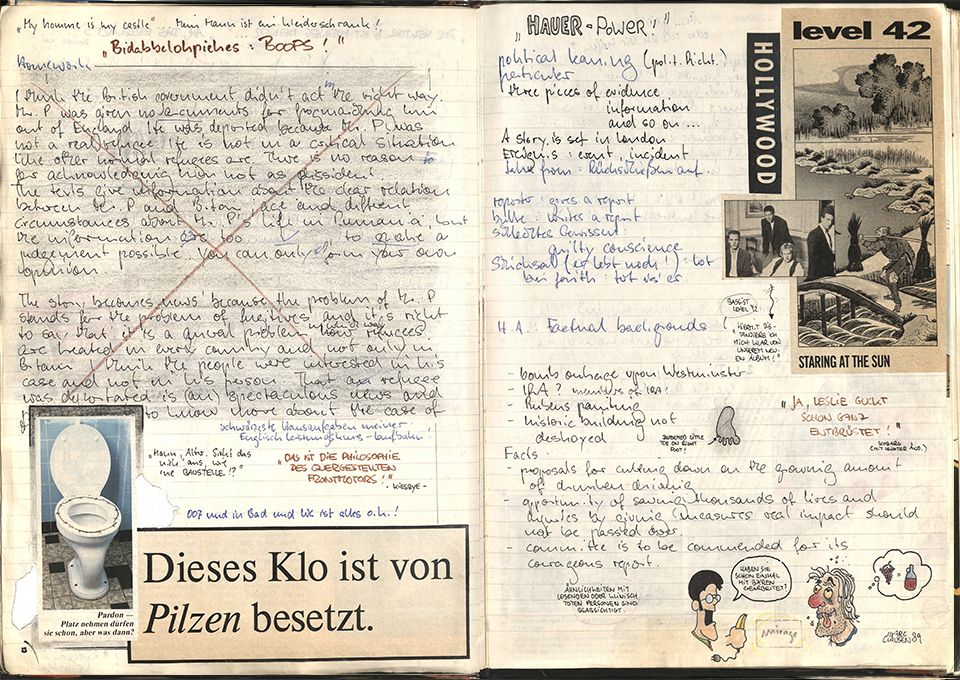 "My homme is my castle" ... Mein Mann ist ein Kleiderschrank!
"Bidabbelohpiehes: BOOPS!"
Homework
I think the British government didn't act in the right way.
Mr. P was given no documents for
out of England. He was deported because Mr. P. was
not a real refugee. He is not in a critical situation
like other normal refugees are. There is no reason to
for acknowledging him not as
The texts give information about the clear relation
between Mr. P and Britain, age and different
circumstances about Mr. P's life in Rumania, but
the information are too to make a
judgement possible. You can only form your own
opinion.
The story becomes news because the problem of Mr. P
stands for the problem of fugitives and it's right
to say that it is a problem how refugees
are treated in every country and not only in
Britain. I think the people were interested in his
case and not in his person. That an refugee
was deportated is (an) spectaculous news and
to know more about the case of
schwärzeste Hausaufgaben meiner
Englisch Leistungskurs-Laufbahn!
"Mann, Alter. Sieht das
nicht aus, wie
'ne BAUSTELLE!?"
"DAS IST DIE PHILOSOPHIE
DES QUERGESTELLTEN
FRONTMOTORS!"
- WIESBYE -
007 und in Bad und WC ist alles o.k.!
Pardon –
Platz nehmen dürfen
sie schon, aber was dann?
Dieses Klo ist von
Pilzen besetzt.
"HAUER-POWER!"
political leaning (polit. Richt.)
particular
three pieces of evidence
information
and so on...
A story is set in London
Ereignis: event, incident
reporter: gives a report
writes a report
schlechtes Gewissen:
guilty conscience
Schicksal (er lebt noch!): lot
H.A.: Factual backgrounds!
- bomb outrage upon Westminster
- IRA? members of IRA!
- Rubens painting
- historic building not
destroyed
Facts:
- proposals for cutting down on the growing amount
of drunken driving
- opportunity of saving thousands of lives and
injuries by giving (measures real impact should
not be passed over.
- committee is to be commended for its
courageous report.
HOLLYWOOD
level 42
STARING AT THE SUN
BASSIST
LEVEL 42:
"HIERMIT DIS-
TANZIERE ICH
MICH KLAR VON
UNSEREM NEU-
EN ALBUM!"
"JA, LESLIE GUCKT
SCHON GANZ
ENTBRÜSTET!"
LITTLE
TOE ON RIGHT
FOOT!
ÄHNLICHKEITEN MIT
LEBENDEN ODER KLINISCH
TOTEN PERSONEN SIND
BEABSICHTIGT.
HABEN SIE
SCHON EINMAL
MIT BÄREN
GEARBEITET?
Mirage
MARC
CLAUSEN 89